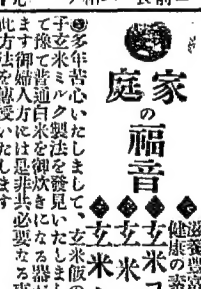 滋養豊富
健康の素
◆玄米
◆玄米
◆玄米
家庭の福音
◉多年苦心いたしまして、玄米飯の
子玄米ミルク製法を發見いたしまし
て豫て普通白米を御炊きになる器
ます御婦人方には是非共必要なる
此方法を傳授いたします